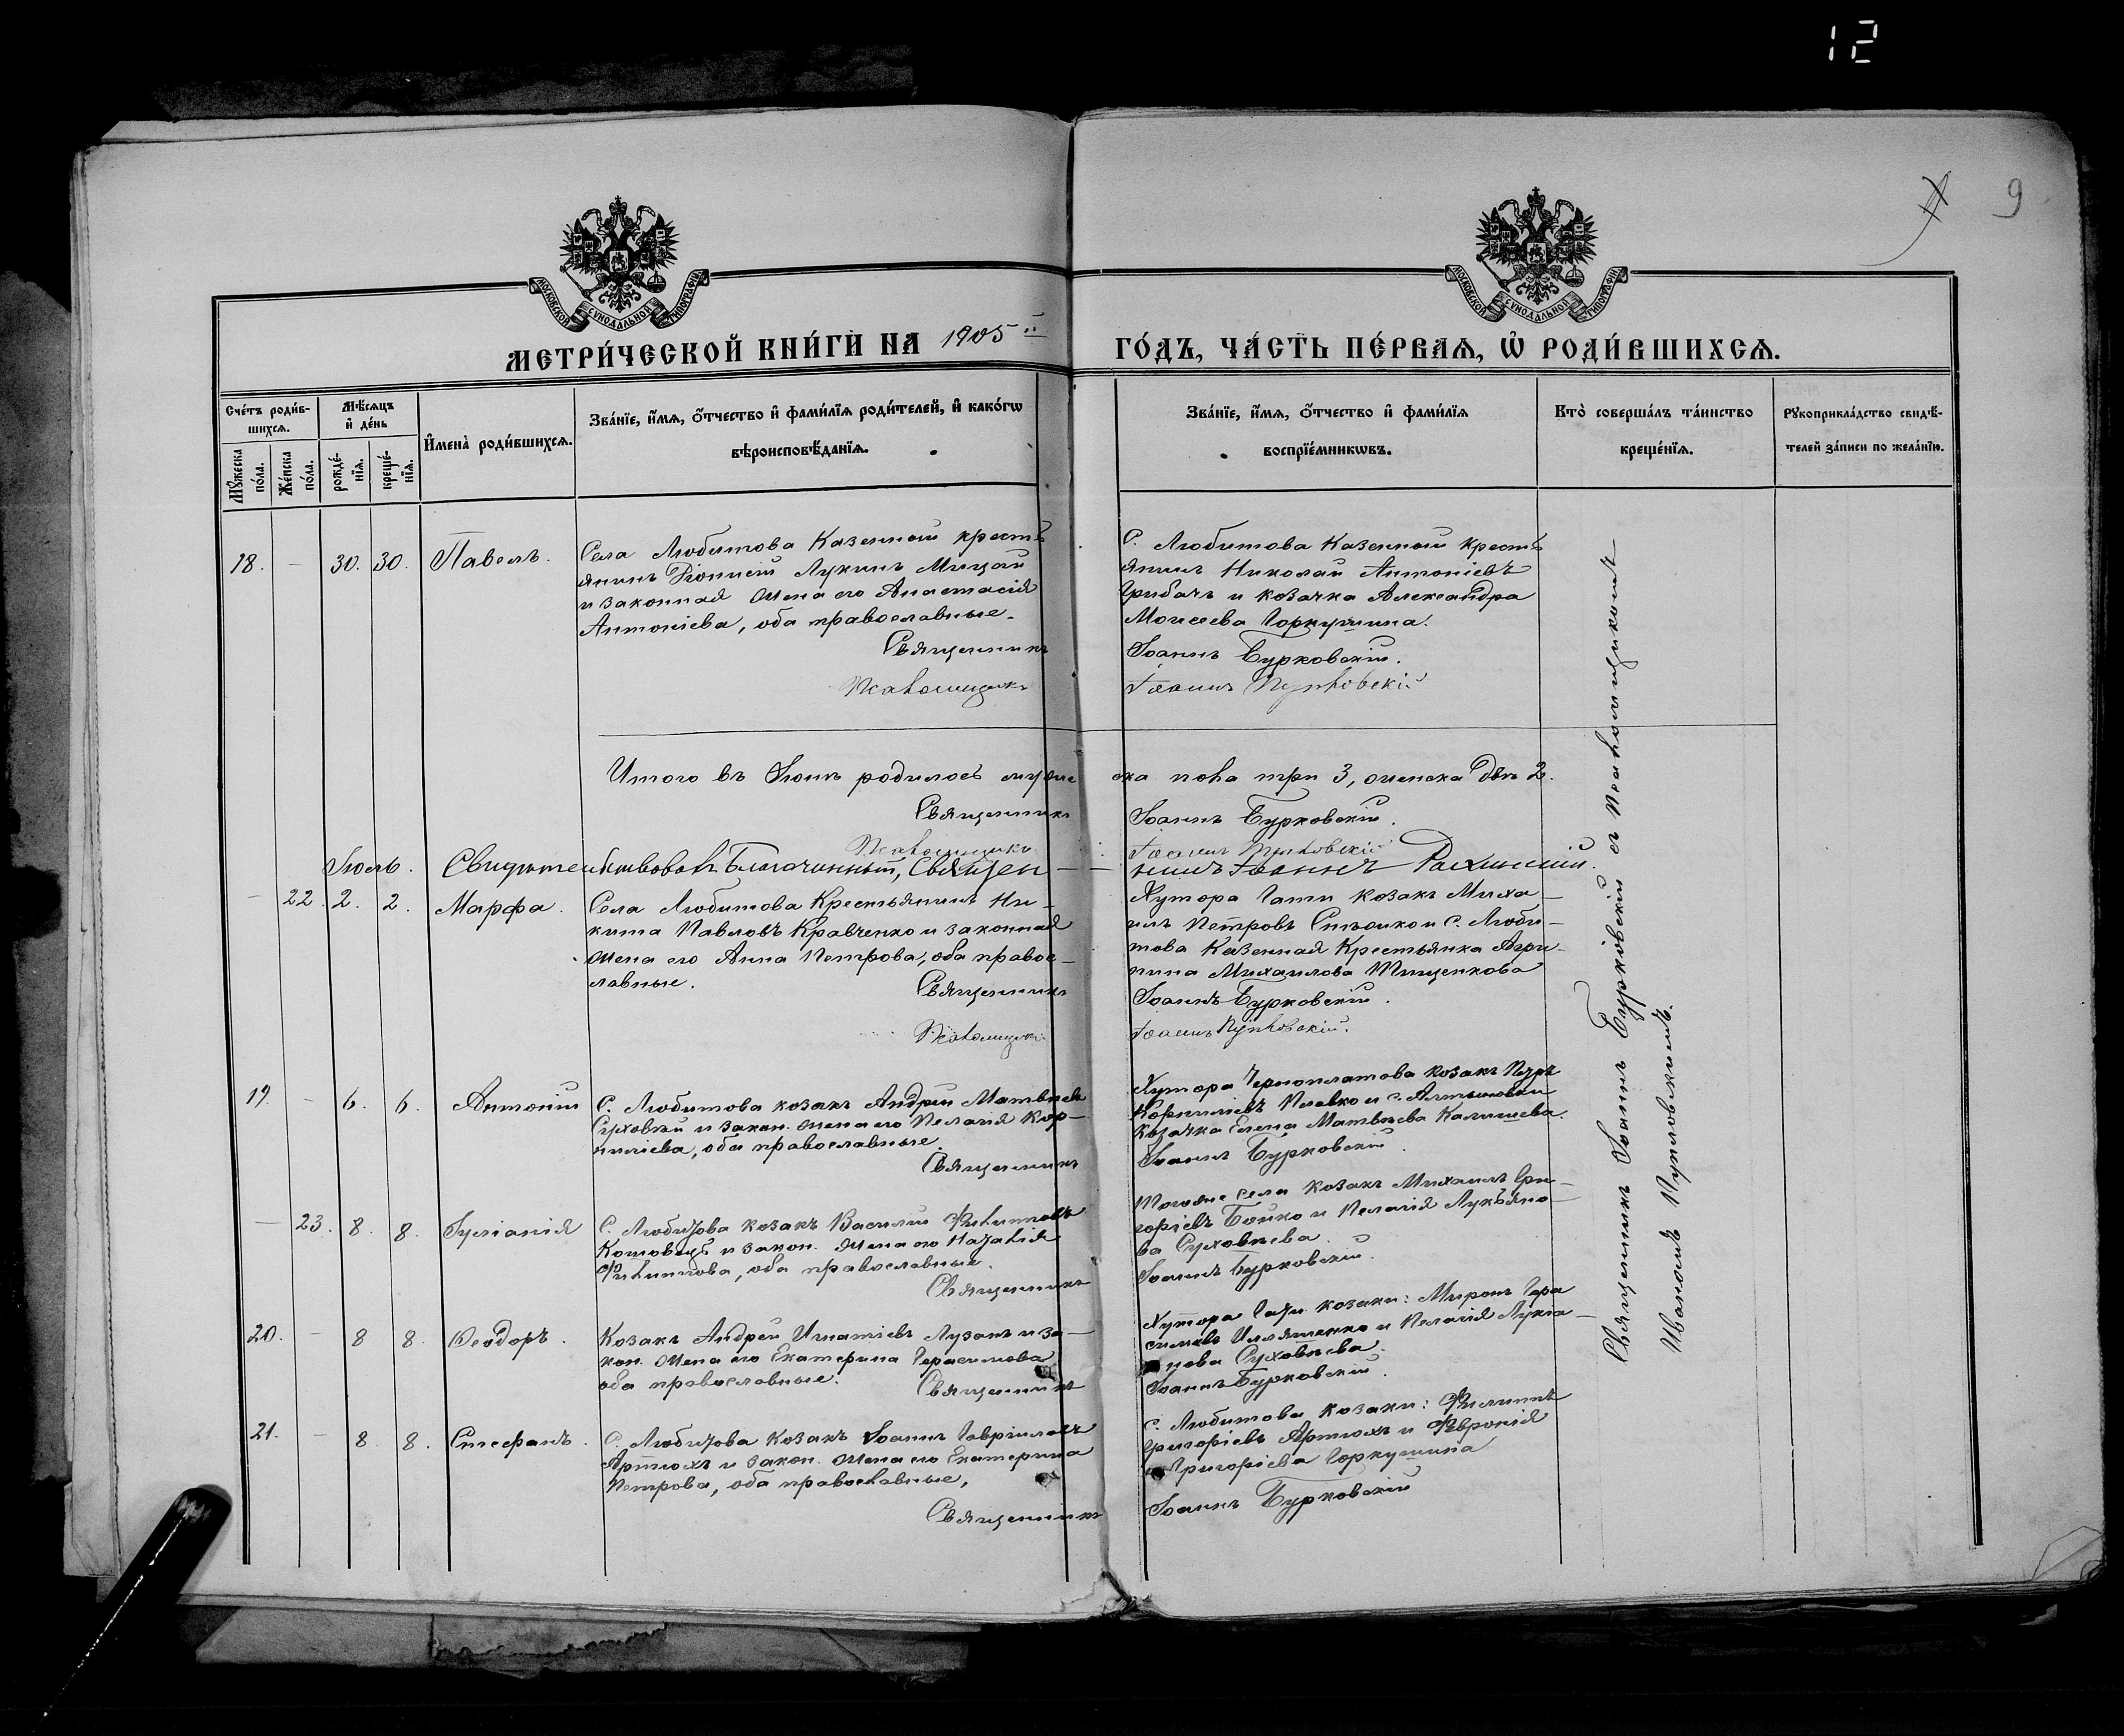 12
9
МОСКОВСКОЙ СѴНОДАЛЬНОЙ ТИПОГРАФІИ
МОСКОВСКОЙ СѴНОДАЛЬНОЙ ТИПОГРАФІИ
МЕТРИ́ЧЕСКОЙ КНИ́ГИ НА 1905 й
ГО́ДЪ, ЧА́СТЬ ПЕ́РВАѦ, Ѡ РОДИ́ВШИХСѦ.
Сче́тъ роди́в-
шихсѧ.
Мѣ́сѧцъ
и҆ де́нь
Мꙋ́жеска
по́ла.
Же́нска
по́ла.
рожде́-
нїѧ.
креще́-
нїѧ.
И҆мена̀ роди́вшихсѧ.
Зва́нїе, и҆́мѧ, ѻ҆́тчество и҆ фами́лїѧ роди́телей, и҆ како́гѡ
вѣроисповѣ́данїѧ.
Зва́нїе, и҆́мѧ, ѻ҆́тчество и҆ фами́лїѧ
воспрїе́мникѡвъ.
Кто̀ соверша́лъ та́инство
креще́нїѧ.
Рꙋкоприкла́дство свидѣ́-
телей за́писи по жела́нїю.
18. - 30. 30. Павелъ.
Села Любитова Казенный кресть
янинъ Діонисій Лукинъ Мицай
и законная жена его Анастасія
Антоніева, оба православные.
Священникъ
Псаломщикъ
С. Любитова Казенный кресть
янинъ Николай Антоніевъ
Грибачъ и козачка Александра
Моисеева Горкушина.
Іоаннъ Бурковскій.
Іоаннъ
Итого въ Іюнѣ родилось мужеска пола три 3, женска двѣ 2.
Священникъ Іоаннъ Бурковскій.
Псаломщикъ Іоаннъ
Іюль.
Свидѣтельствовалъ Благочинный, Священникъ Іоаннъ
- 22. 2. 2. Марфа.
Села Любитова Крестьянинъ Ни-
кита Павловъ Кравченко и законная
жена его Анна Петрова, оба правос-
лавные.
Священникъ
Псаломщикъ
Хутора Гати козакъ Миха-
илъ Петровъ и С. Люби-
това Казенная Крестьянка Агри-
пина Михаилова Тищенкова
Іоаннъ Бурковскій.
Іоаннъ
19. - 6. 6. Антоній
С. Любитова козакъ Андрей Матвѣевъ
Суховѣй и закон. жена его Пелагія Кор-
ниліева, оба православные.
Священникъ
Хутора козакъ
Корниліевъ и с.
Козачка Елена Матвѣева
Іоаннъ Бурковскій.
- 23. 8. 8. Іуліанія
С. Любитова козакъ Василій Филиповъ
и закон. жена его Наталія
Филиппова, оба православные.
Священникъ
Тогоже села козакъ Михаилъ Гри-
горіевъ Бойко и Пелагія Лукьяно-
ва Суховѣева.
Іоаннъ Бурковскій.
20. - 8 8. Ѳеодоръ.
Козакъ Андрей Игнатіевъ Лузанъ и за-
кон. жена его Екатерина Герасимова
оба православные.
Священникъ
Хутора Гати козаки: Миронъ Гера
симовъ Ильяшенко и Пелагія Лукіа-
нова Суховѣева.
Іоаннъ Бурковскій.
21. - 8. 8. Стефанъ.
С. Любитова козакъ Іоаннъ Гавріиловъ
Артюхъ и закон. жена его Екатерина
Петрова, оба православные,
Священникъ
С. Любитова козаки: Филиппъ
Григоріевъ Артюхъ и Февронія
Григоріева Горкушина
Іоаннъ Бурковскій
Священникъ Іоаннъ Бурковскій съ Псаломщикомъ
Иваномъ